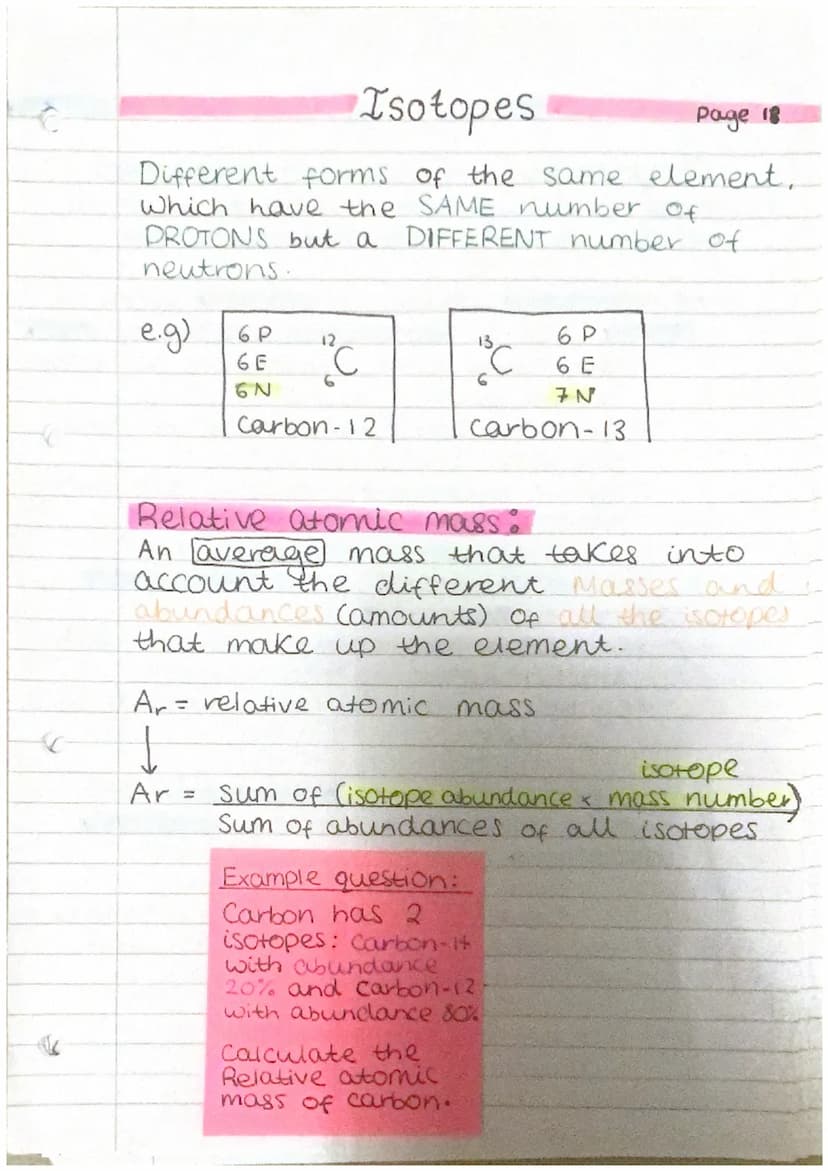 Isotopes
Page 18
Different forms of the same element,
which have the SAME number of
PROTONS but a DIFFERENT number of
neutrons.
e.g)
6 P
6 E
6 N
12
6
C
Carbon-12
13
6
C
6 P
6 E
7 N
Carbon-13
Relative atomic mass:
An average mass that takes into
account the different Masses and
abundances (amounts) of all the isotopes
that make up the element.
Ar = relative atomic mass
↓
isotope
Ar = sum of (isotope abundance x mass number)
Sum of abundances of all isotopes
Example question:
Carbon has 2
isotopes: Carbon-14
with abundance
20% and Carbon-12
with abundance 80%
Calculate the
Relative atomic
mass of carbon.